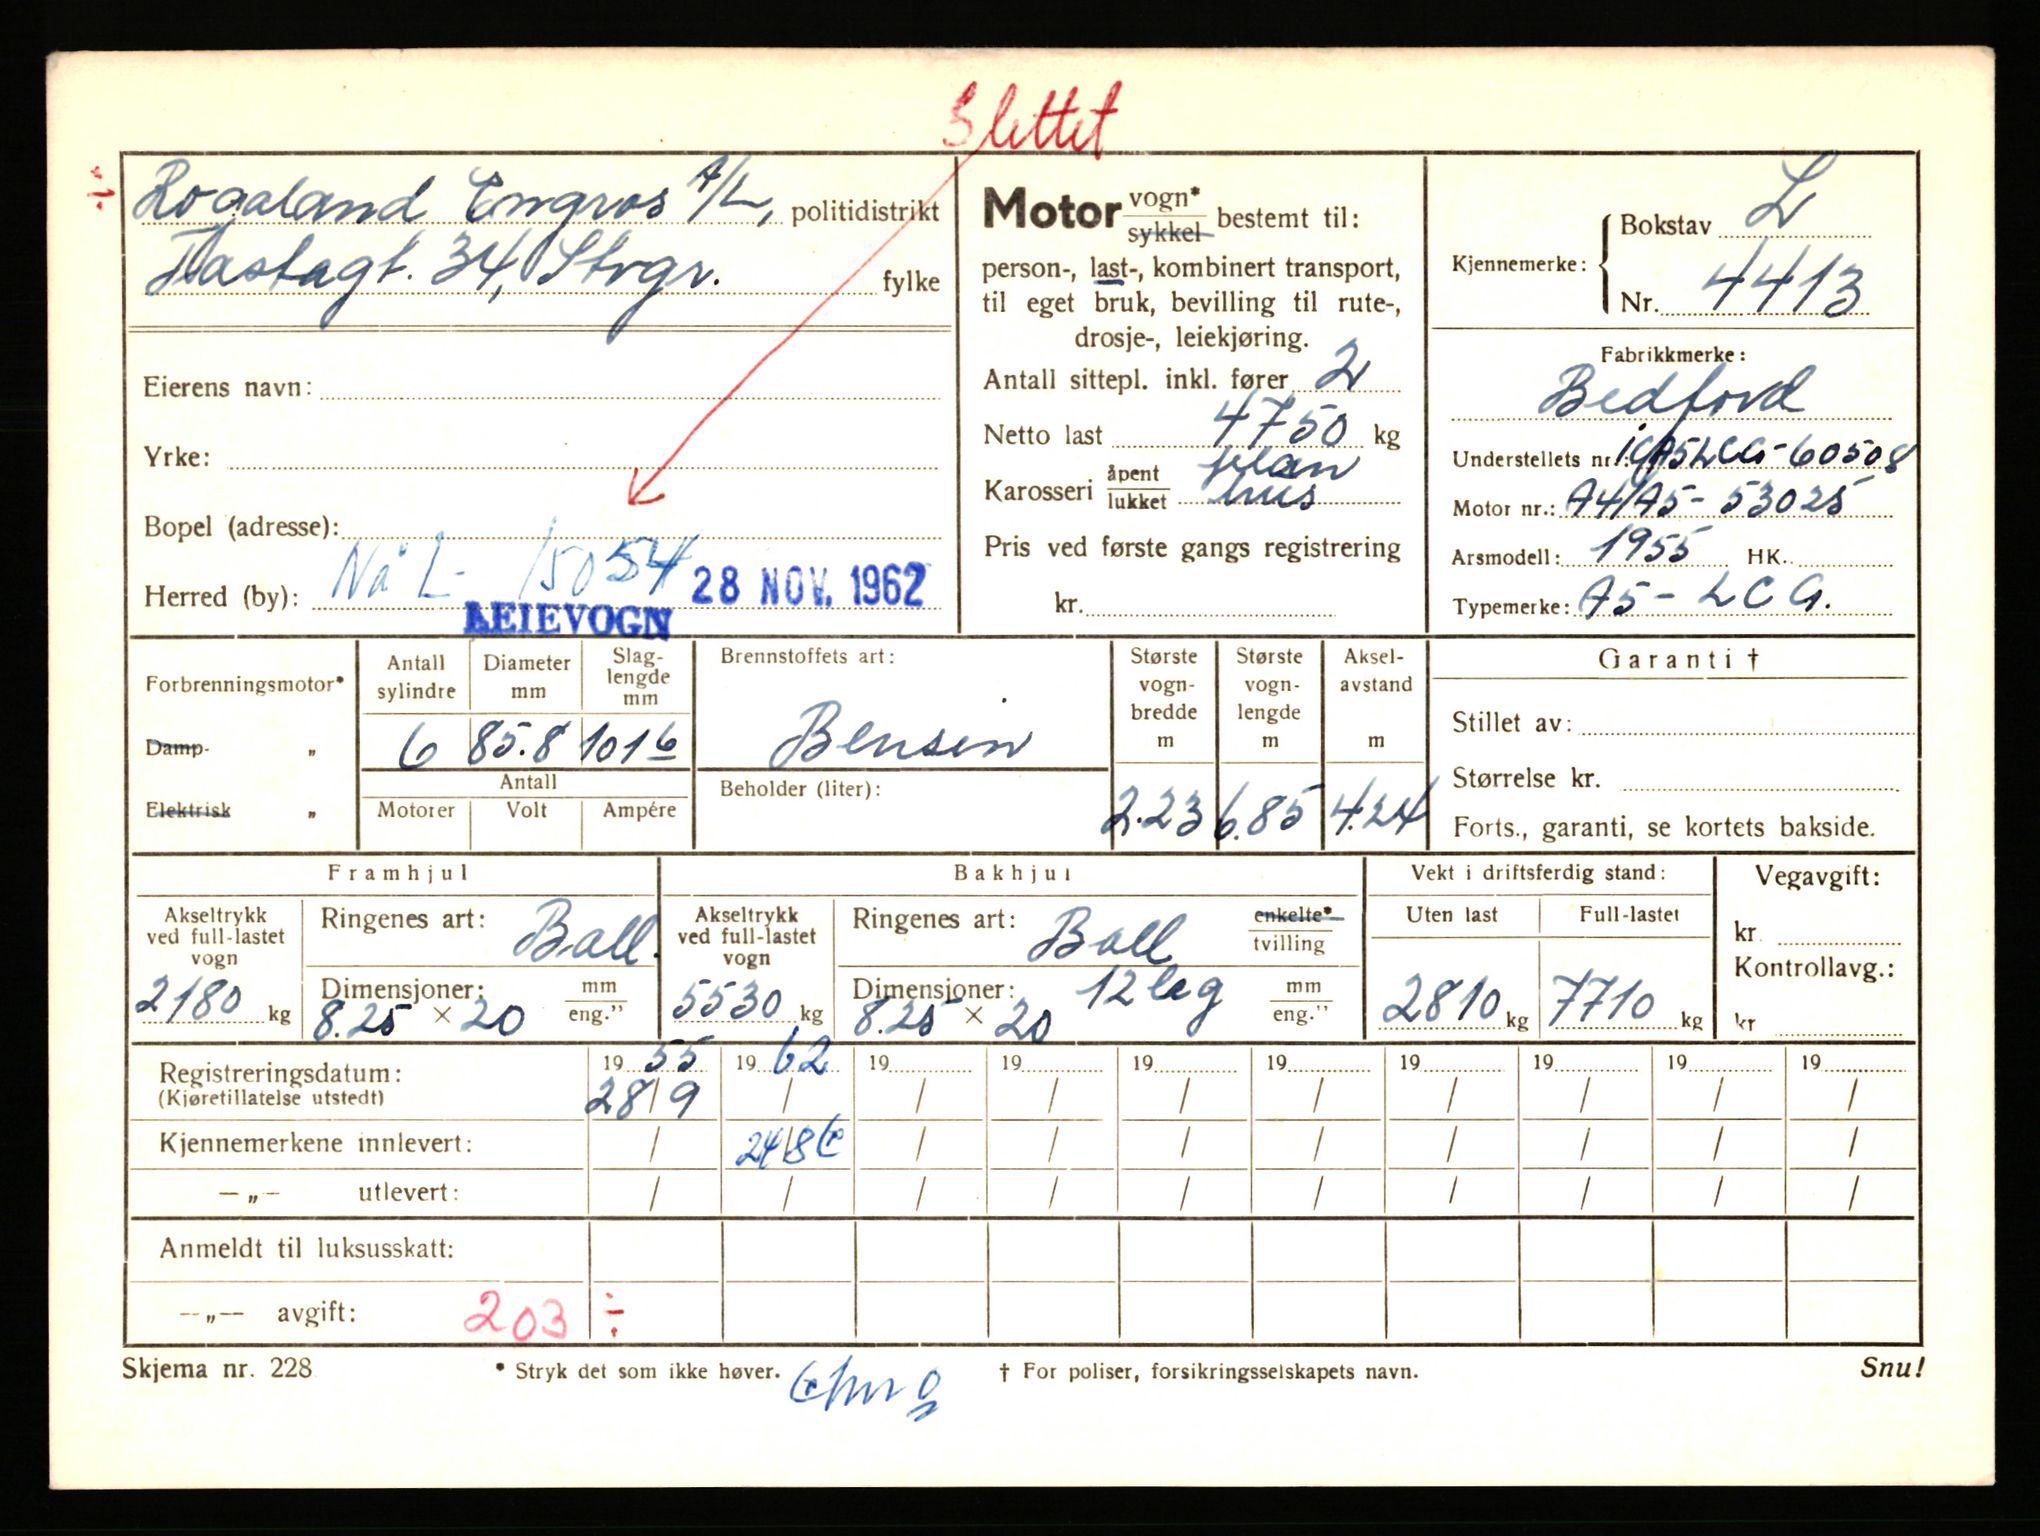 Slettet
Rogaland Engros A/L, politidistrikt
Tastagt. 34, Stvgr. fylke
Eierens navn:
Yrke:
Bopel (adresse):
Herred (by): Nå L- 15054 28 NOV. 1962
LEIEVOGN
Motor vogn* / sykkel bestemt til:
person-, last-, kombinert transport,
til eget bruk, bevilling til rute-,
drosje-, leiekjøring.
Antall sittepl. inkl. fører 2
Netto last 4750 kg
Karosseri åpent / lukket plan hus
Pris ved første gangs registrering
kr.
Kjennemerke: Bokstav L
Nr. 4413
Fabrikkmerke:
Bedford
Understellets nr.: A5LCG-60508
Motor nr.: A4/A5-53025
Arsmodell: 1955 HK.
Typemerke: A5-LCG.
Forbrenningsmotor*
Damp- „
Elektrisk „
Antall sylindre 6
Diameter mm 85.8
Slag-lengde mm 101 6
Antall
Motorer Volt Ampére
Brennstoffets art:
Bensin
Beholder (liter):
Største vogn-bredde m 2.23
Største vogn-lengde m 6.85
Aksel-avstand m 4.24
Garanti †
Stillet av:
Størrelse kr.
Forts., garanti, se kortets bakside.
Framhjul
Akseltrykk ved full-lastet vogn 2180 kg
Ringenes art: Ball.
Dimensjoner: 8.25 × 20 mm / eng."
Bakhjul
Akseltrykk ved full-lastet vogn 5530 kg
Ringenes art: Ball enkelte* / tvilling
Dimensjoner: 12 lag
8.25 × 20 mm / eng."
Vekt i driftsferdig stand:
Uten last Full-lastet
2810 kg 7710 kg
Vegavgift:
kr
Kontrollavg.:
kr
Registreringsdatum: 19 55 19 62 19 19 19 19 19 19 19 19
(Kjøretillatelse utstedt) 28/9 / / / / / / / / /
Kjennemerkene innlevert: / 24/8 / / / / / / / /
—„— utlevert: / / / / / / / / / /
Anmeldt til luksusskatt:
—„— avgift: 203 ÷
Skjema nr. 228 * Stryk det som ikke høver. † For poliser, forsikringsselskapets navn. Snu!